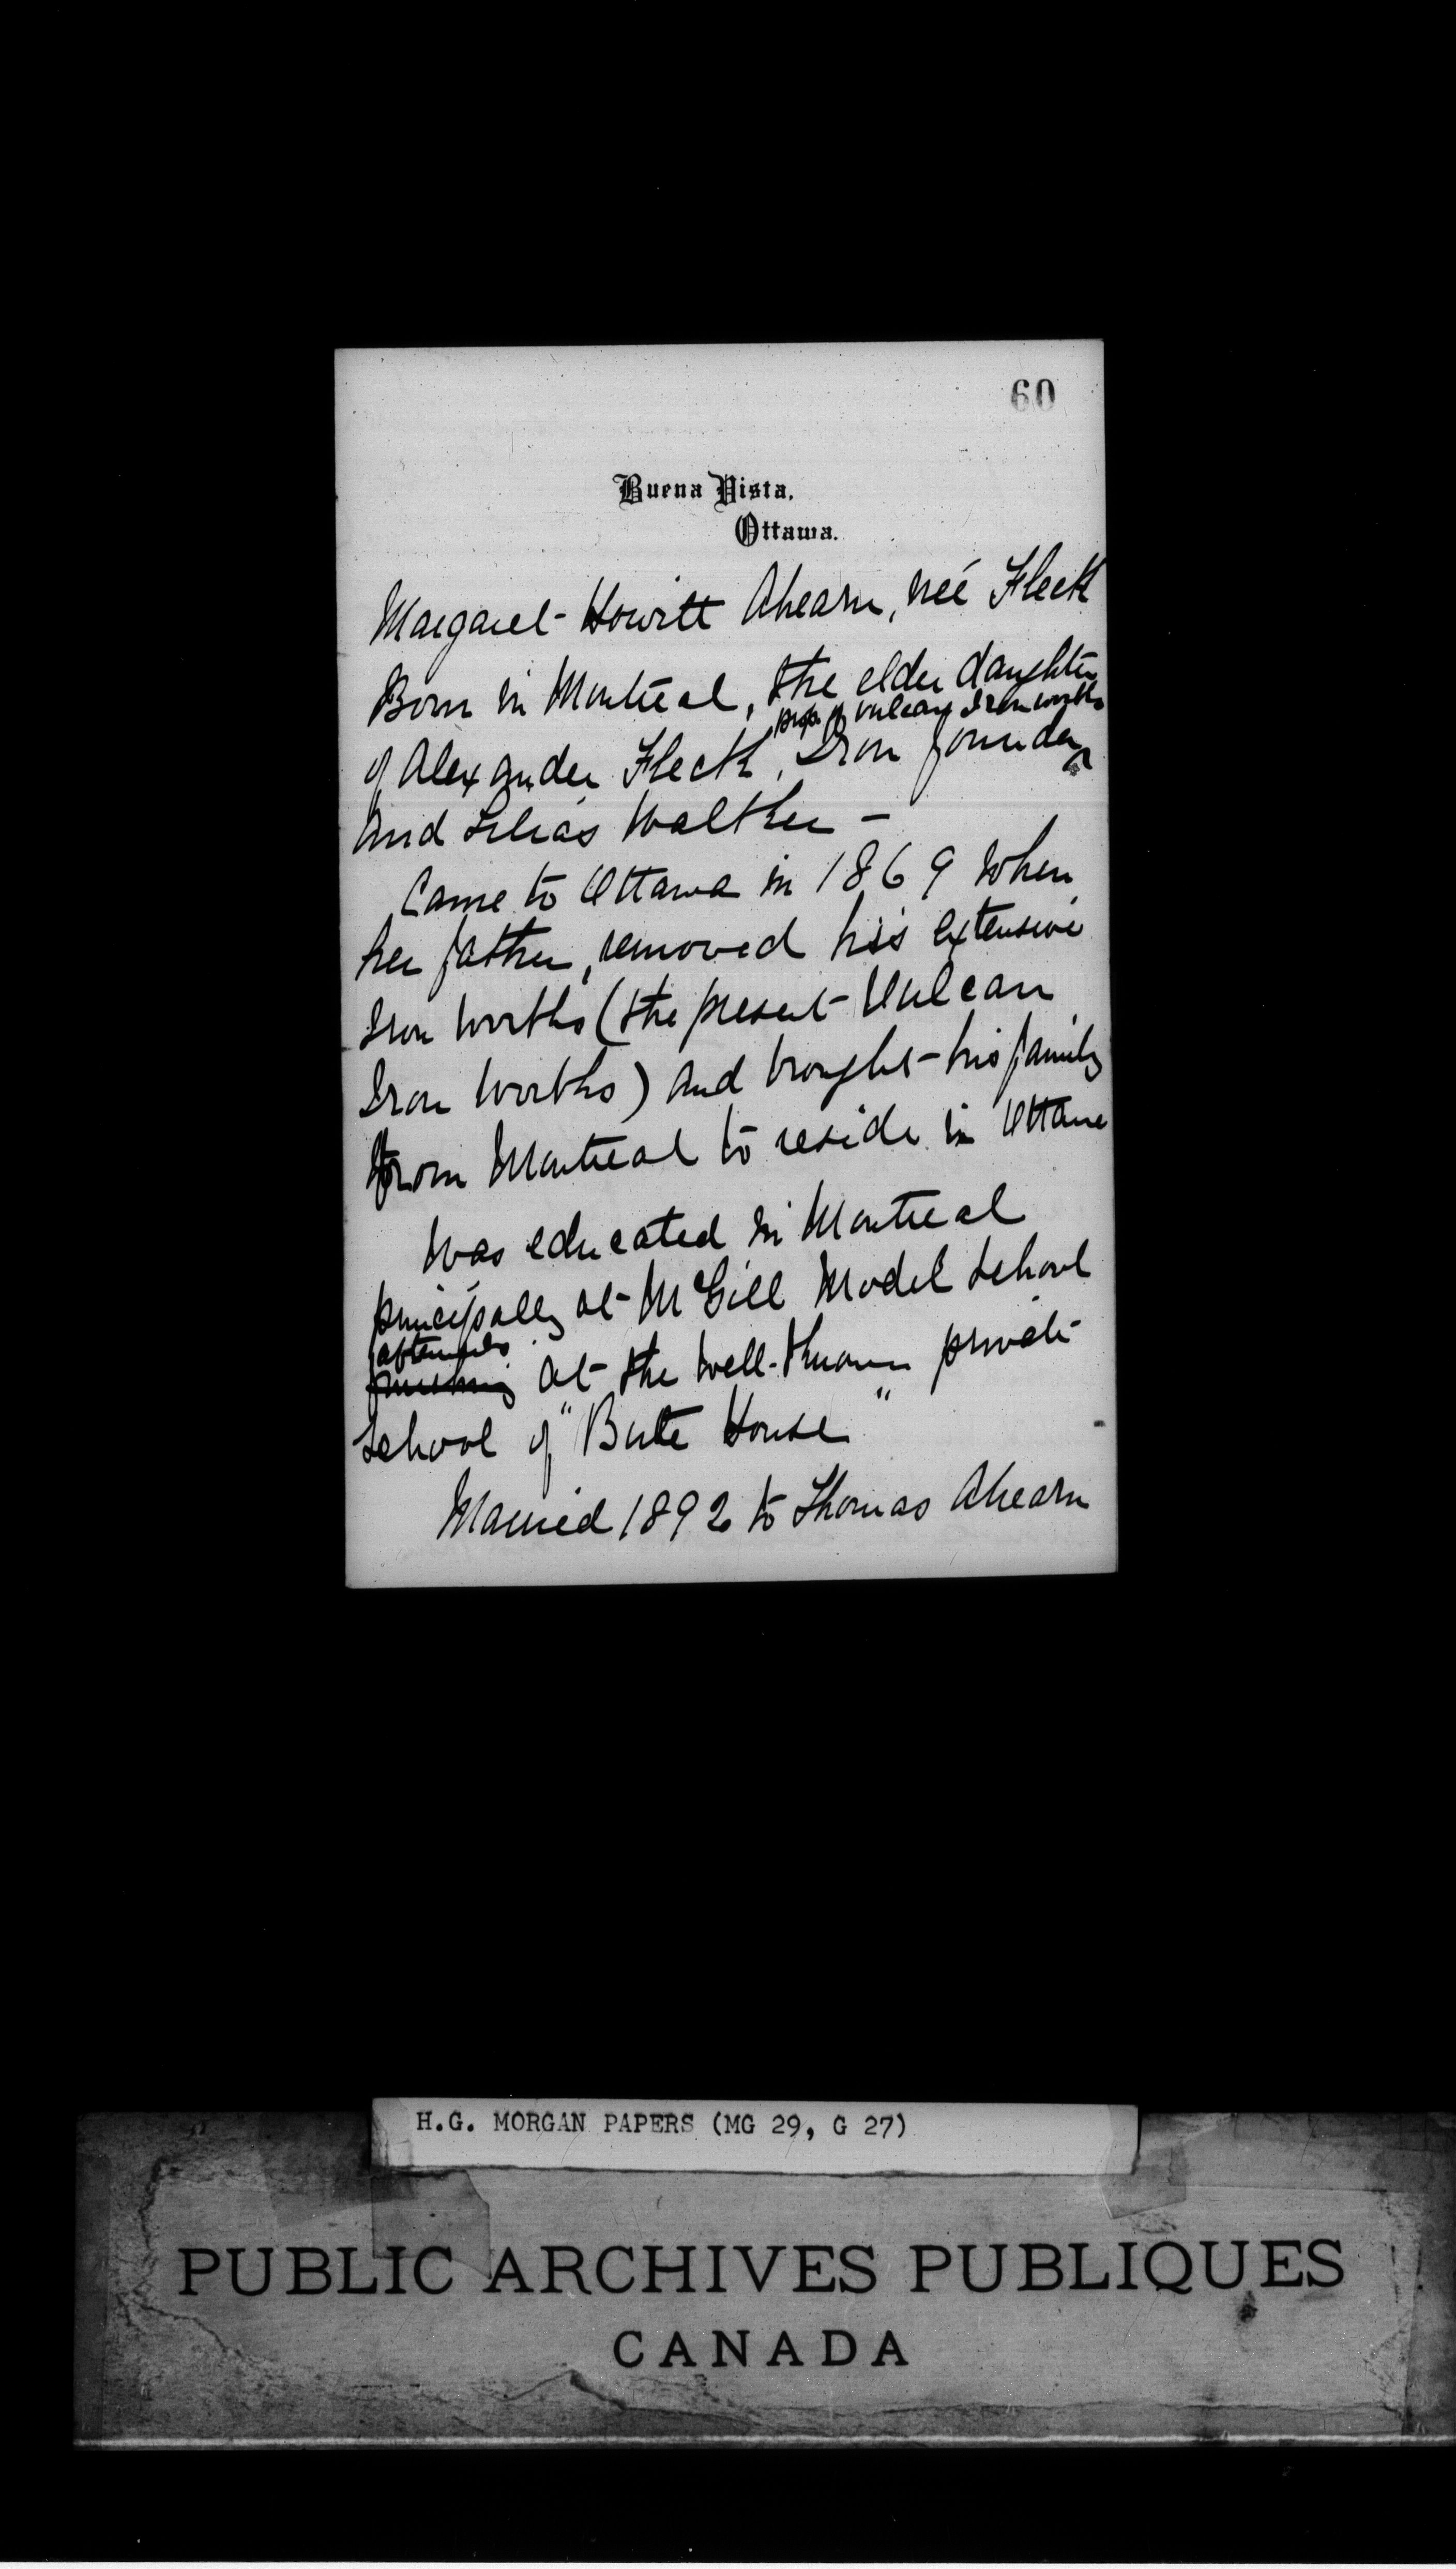 60
Buena Vista,
Ottawa.
Margaret Howitt Ahearn, neé Fleck
Born in Montreal, the elder daughter
prop. of Vulcan Iron works
of Alexander Fleck, Iron founder
And Lilias Walther –
Came to Ottawa in 1869 when
her father, removed his extensive
Iron Works (the present Vulcan
Iron Works) and brought his family
from Montreal to reside in Ottawa
Was educated in Montreal
principally at McGill Model School
afterwards
finishing at the well-known private
School of "Bute House"
Married 1892 to Thomas Ahearn
H.G. MORGAN PAPERS (MG 29, G 27)
PUBLIC ARCHIVES PUBLIQUES
CANADA